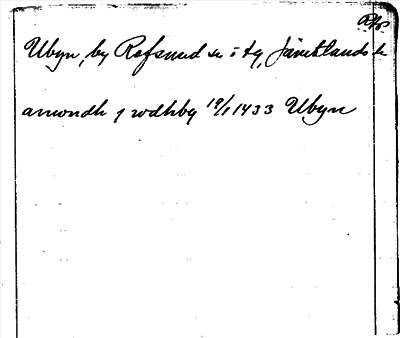 Ubyn, by Refsund sn i tg, Jämtlands l
amondh j wdhby 19/1 1433 Ubyn